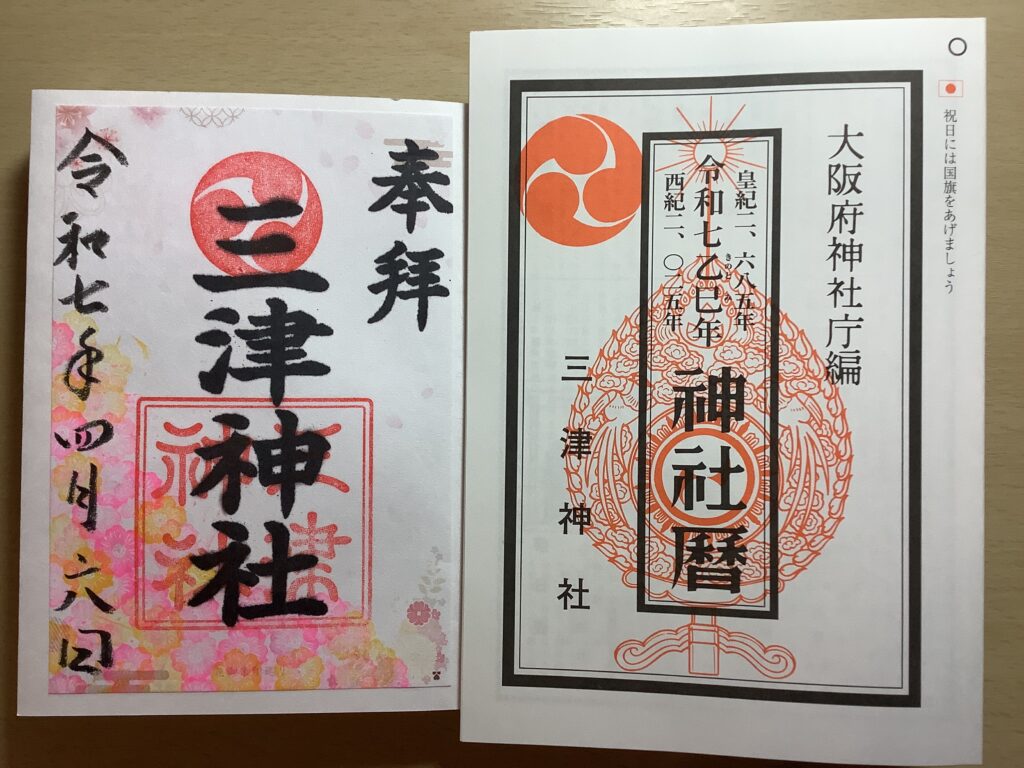 奉拝
三津神社
三津神社
令和七年四月六日
祝日には国旗をあげましょう
大阪府神社庁編
皇紀二、六八五年
令和七乙巳年
西紀二、〇二五年
神社暦
三津神社